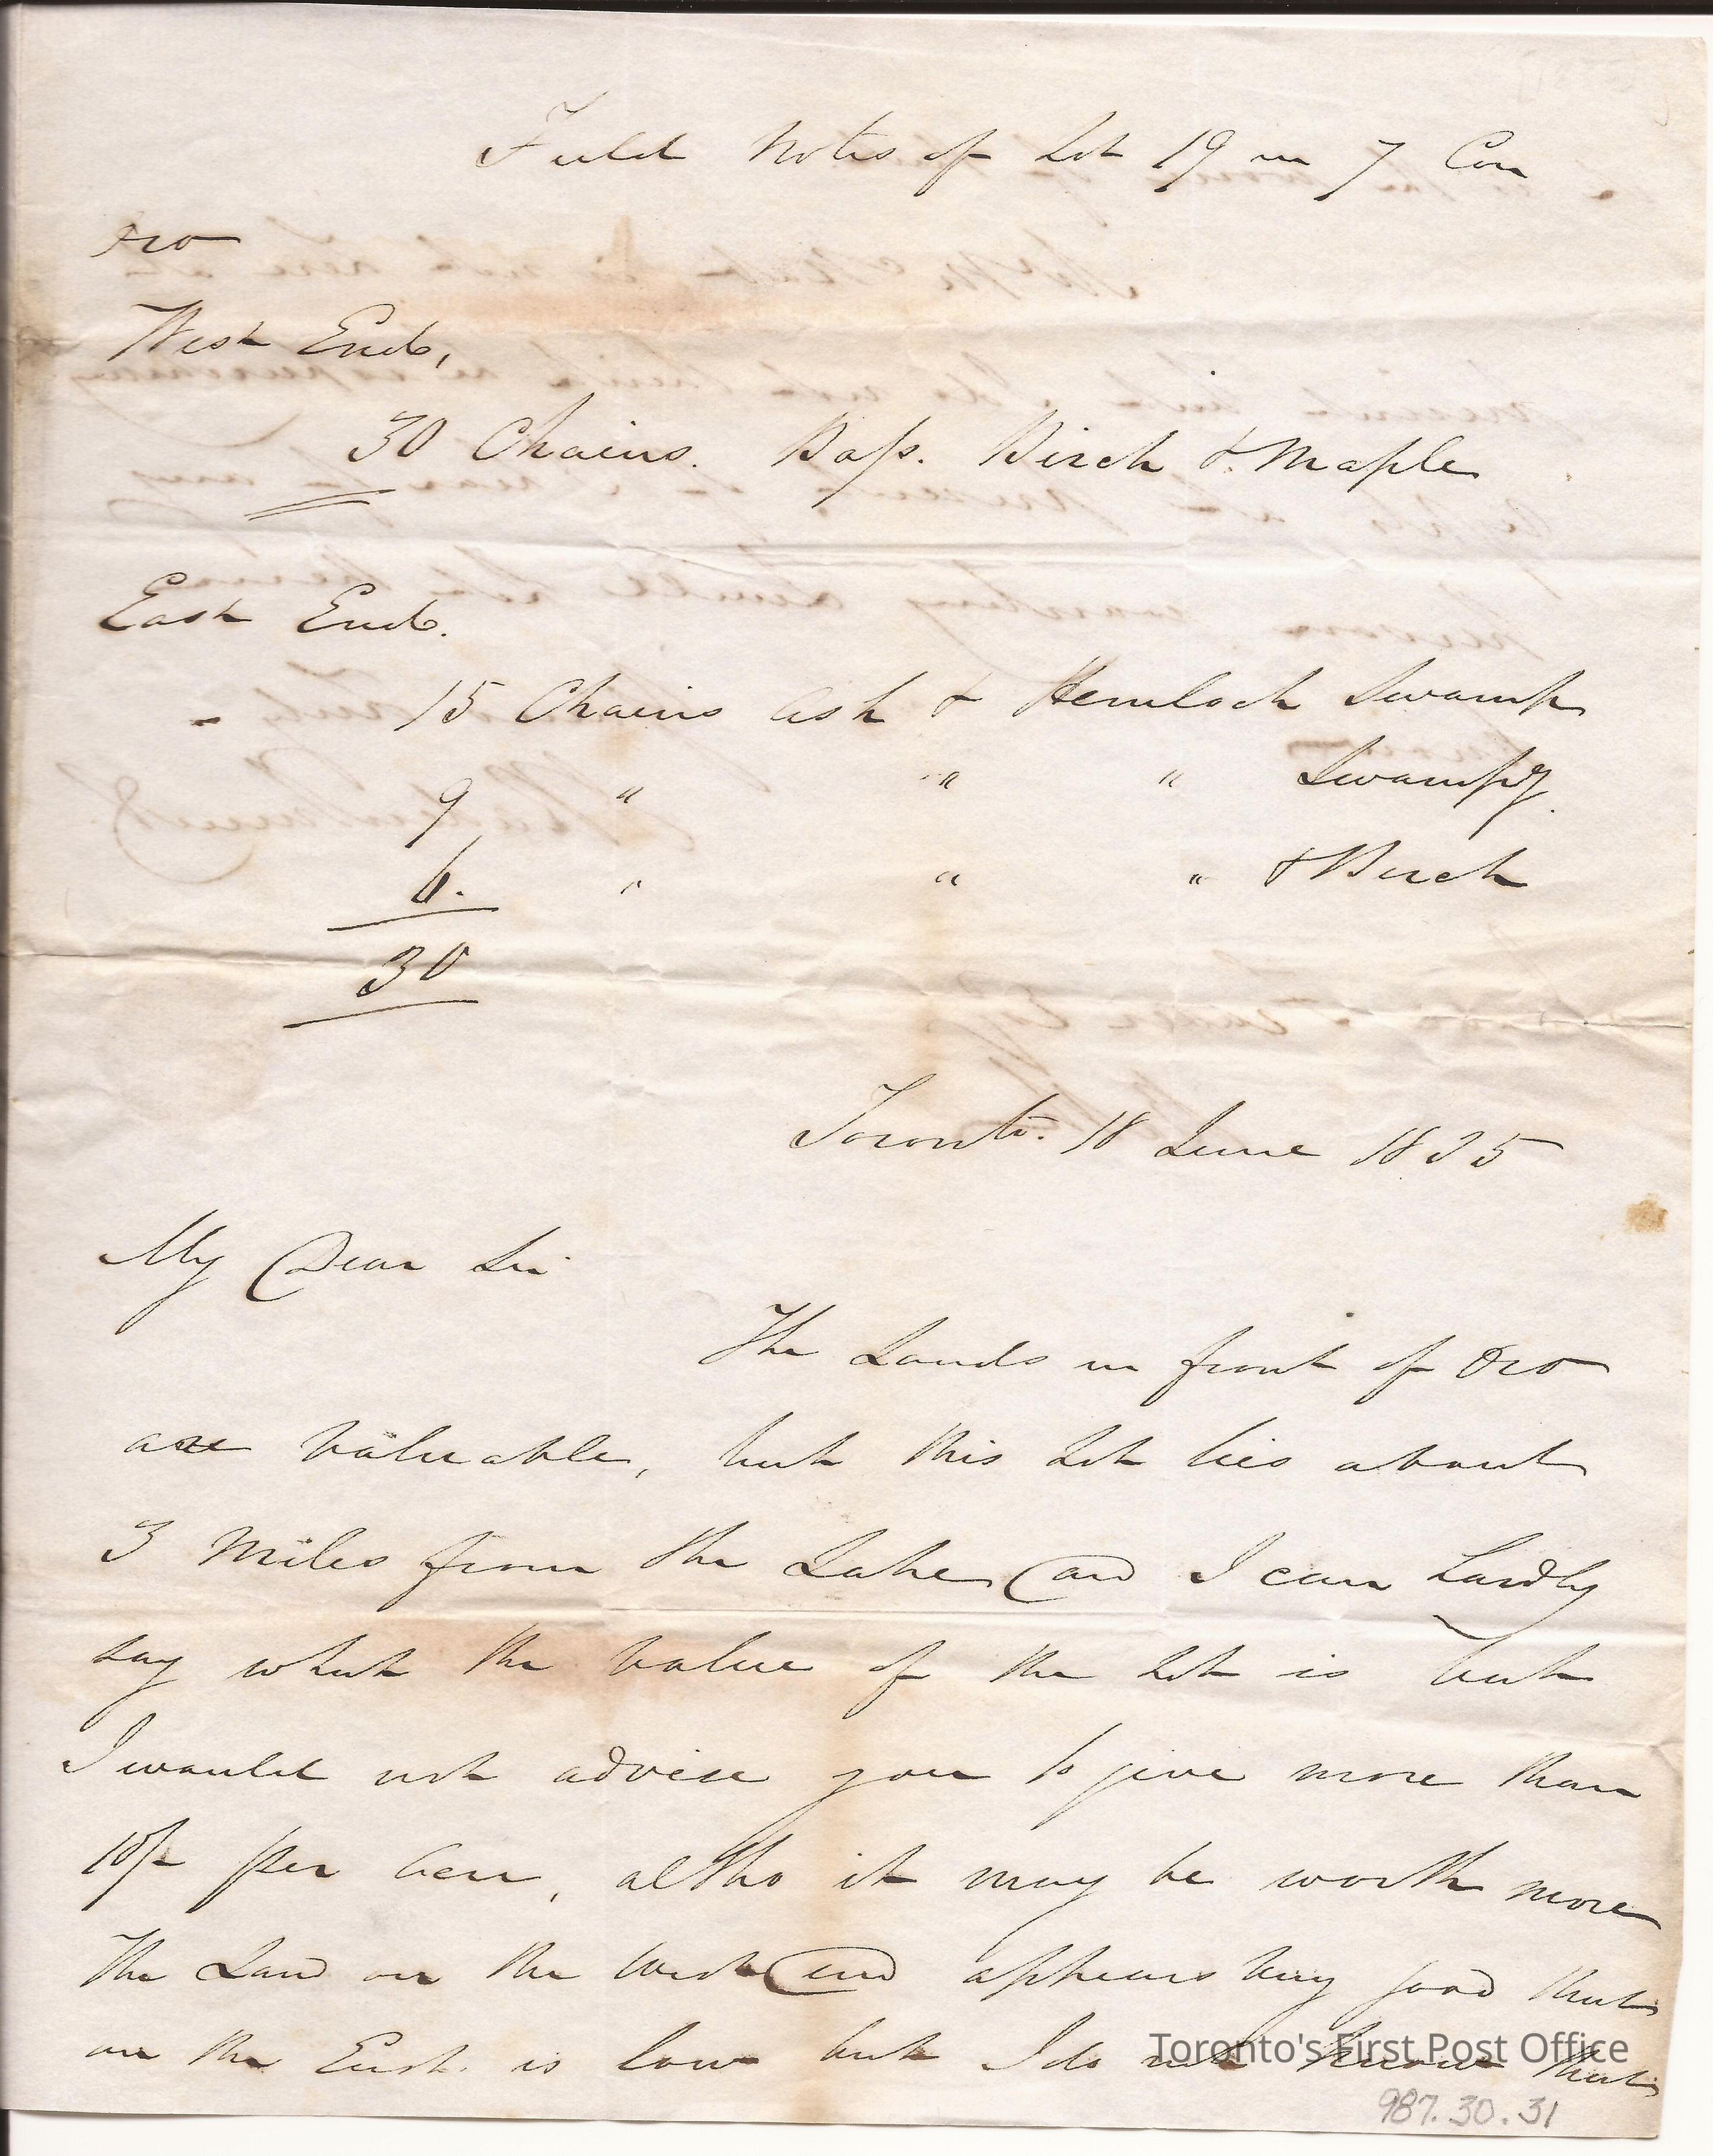 Field Notes of Lot 19 in 7 Con
Oro
West End,
30 Chains. Bass. Birch & Maple
East End.
15 Chains Ash & Hemlock Swamp
9 " " " Swampy.
6. " " " & Birch
30
Toronto. 18 June 1835
My Dear Sir
The Lands in front of Oro
are valuable, but this Lot lies about
3 Miles from the Lake and I can hardly
say what the value of the Lot is but
I would not advise you to give more than
10/- per Acre, altho it may be worth more
The Land on the West end appears very good that
on the East is low but I do not know that
Toronto's First Post Office
987.30.31